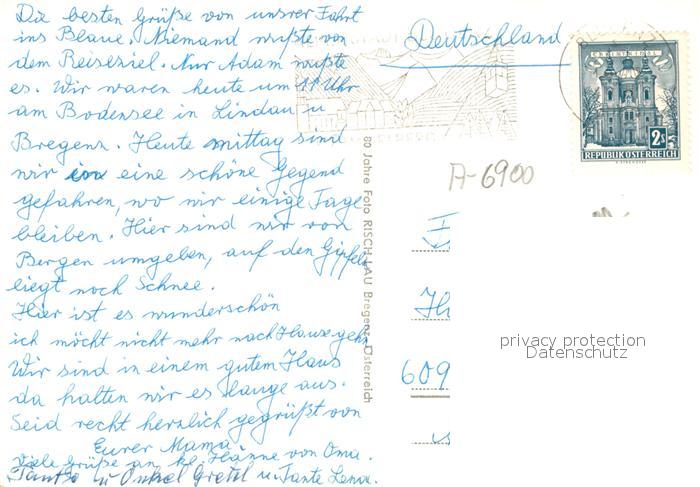 Die besten Grüße von unsrer Fahrt
ins Blaue. Niemand wußte von
dem Reiseziel. Nur Adam wußte
es. Wir waren heute um 11 Uhr
am Bodensee in Lindau u
Bregenz. Heute mittag sind
wir in eine schöne Gegend
gefahren, wo wir einige Tage
bleiben. Hier sind wir von
Bergen umgeben, auf den Gipfeln
liegt noch Schnee.
Hier ist es wunderschön
ich möcht nicht mehr nach Hause gehn
Wir sind in einem gutem Haus
da halten wir es lange aus.
Seid recht herzlich gegrüßt von
Eurer Mama
Viele Grüße an kl. Hanne von Oma.
u Onkel Gretel u. Tante Lena.
80 Jahre Foto RISCH-LAU Bregenz Österreich
Deutschland
CHRISTKINDL
2 S
REPUBLIK ÖSTERREICH
A-6900
609
privacy protection
Datenschutz